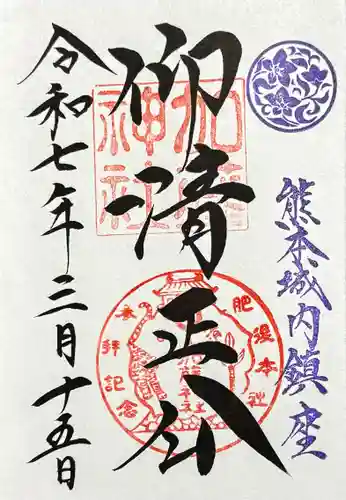 熊本城内鎮座
仰清正公
加藤神社
肥後本社
参拝記念
令和七年三月十五日